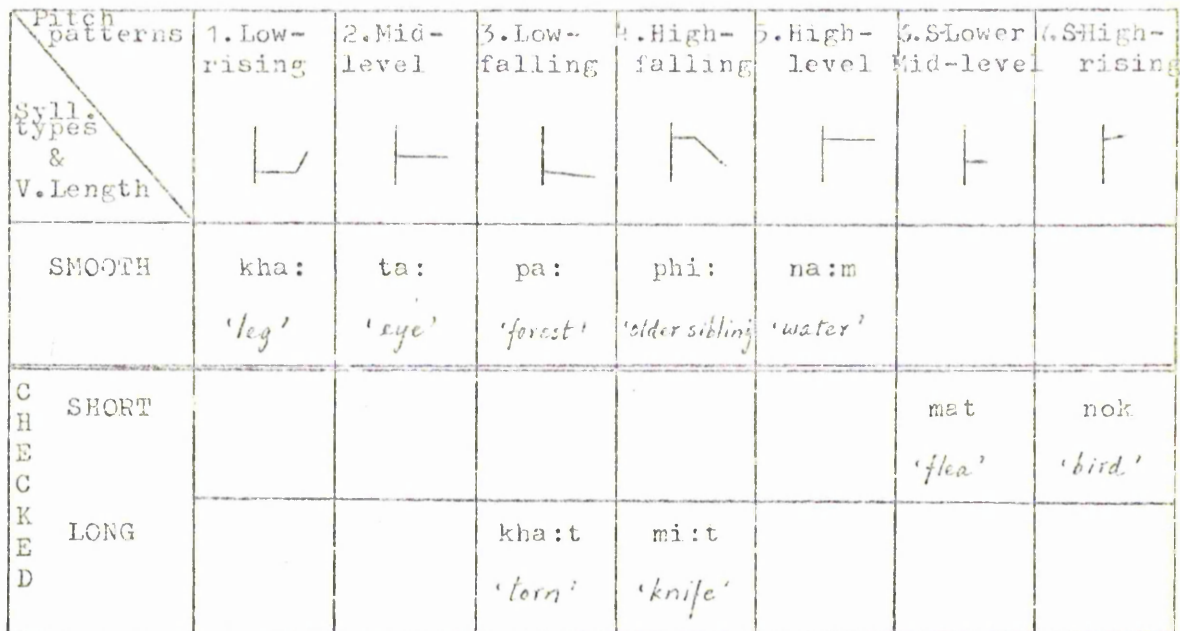 Pitch
patterns
Syll.
types
&
V.Length
1.Low-
rising
2.Mid-
level
3.Low-
falling
4.High-
falling
5.High-
level
6.S-Lower
Mid-level
7.S-High-
rising
SMOOTH
kha:
ta:
pa:
phi:
na:m
'leg'
'eye'
'forest'
'older sibling
'water'
CHECKED
SHORT
mat
nok
'flea'
'bird'
LONG
kha:t
mi:t
'torn'
'knife'